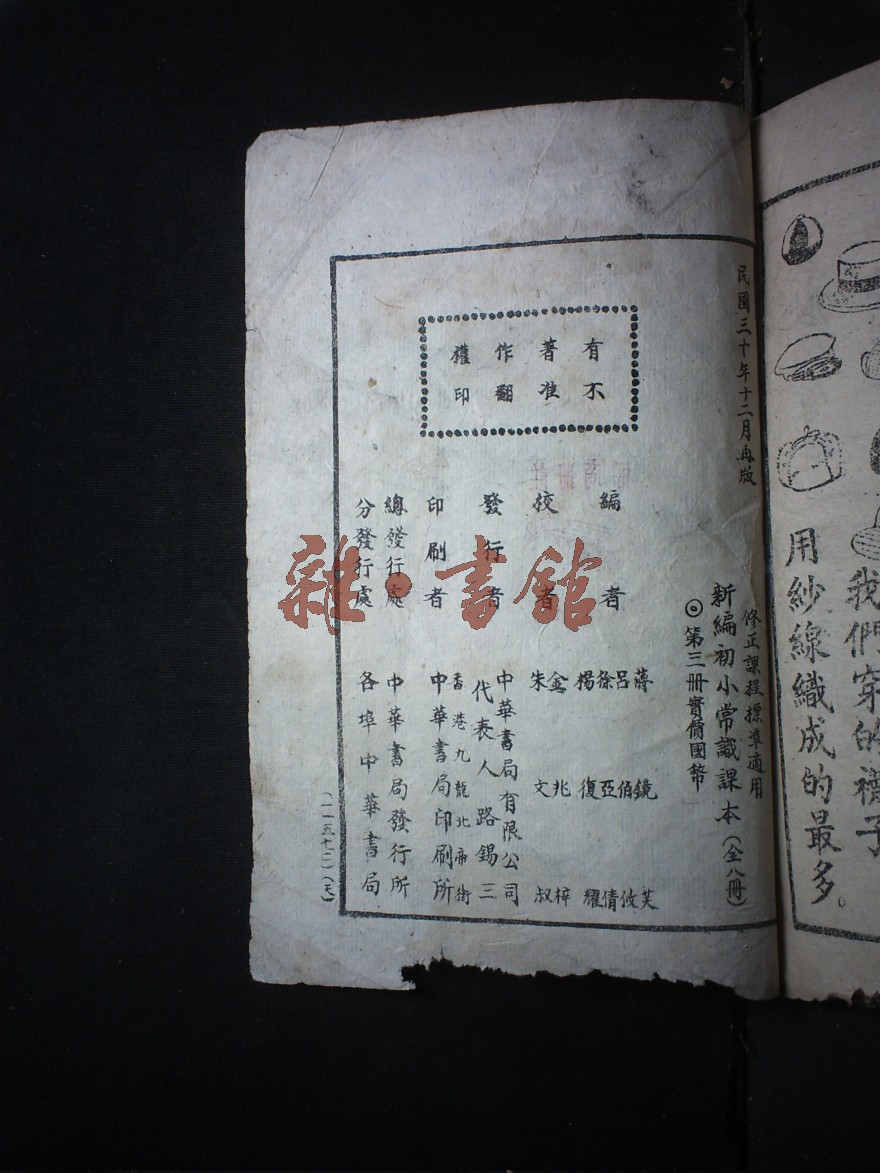 我們穿的襪子
用紗線織成的最多。
民國三十年十二月再版
修正課程標準適用
新編初小常識課本（全八冊）
◎第三冊實價國幣
有不
著准
作翻
權印
編者
蔣鏡芙
呂伯攸
徐亞倩
楊復耀
校者
金兆梓
朱文叔
發行者
中華書局有限公司
代表人路錫三
印刷者
香港九龍北帝街
中華書局印刷所
總發行處
中華書局發行所
分發行處
各埠中華書局
（一一五七二）（天）
雜·書館